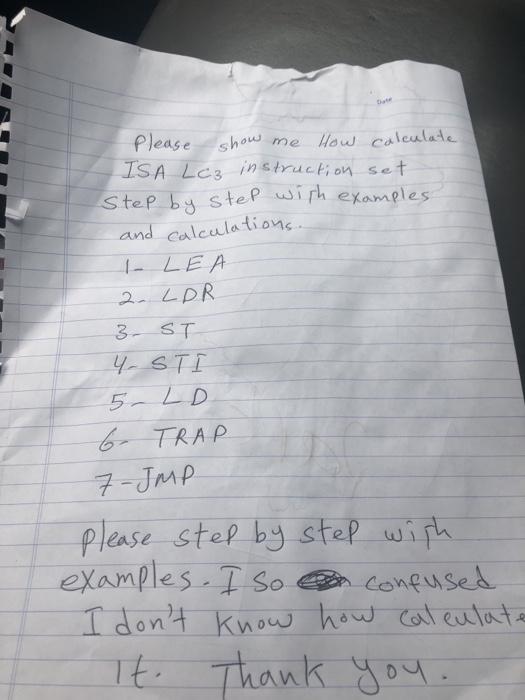 Date
Please show me How calculate
ISA LC3 instruction set
Step by step with examples
and calculations.
1- LEA
2- LDR
3- ST
4- STI
5- LD
6- TRAP
7- JMP
Please step by step with
examples. I so confused
I don't know how calculate
It. Thank you.